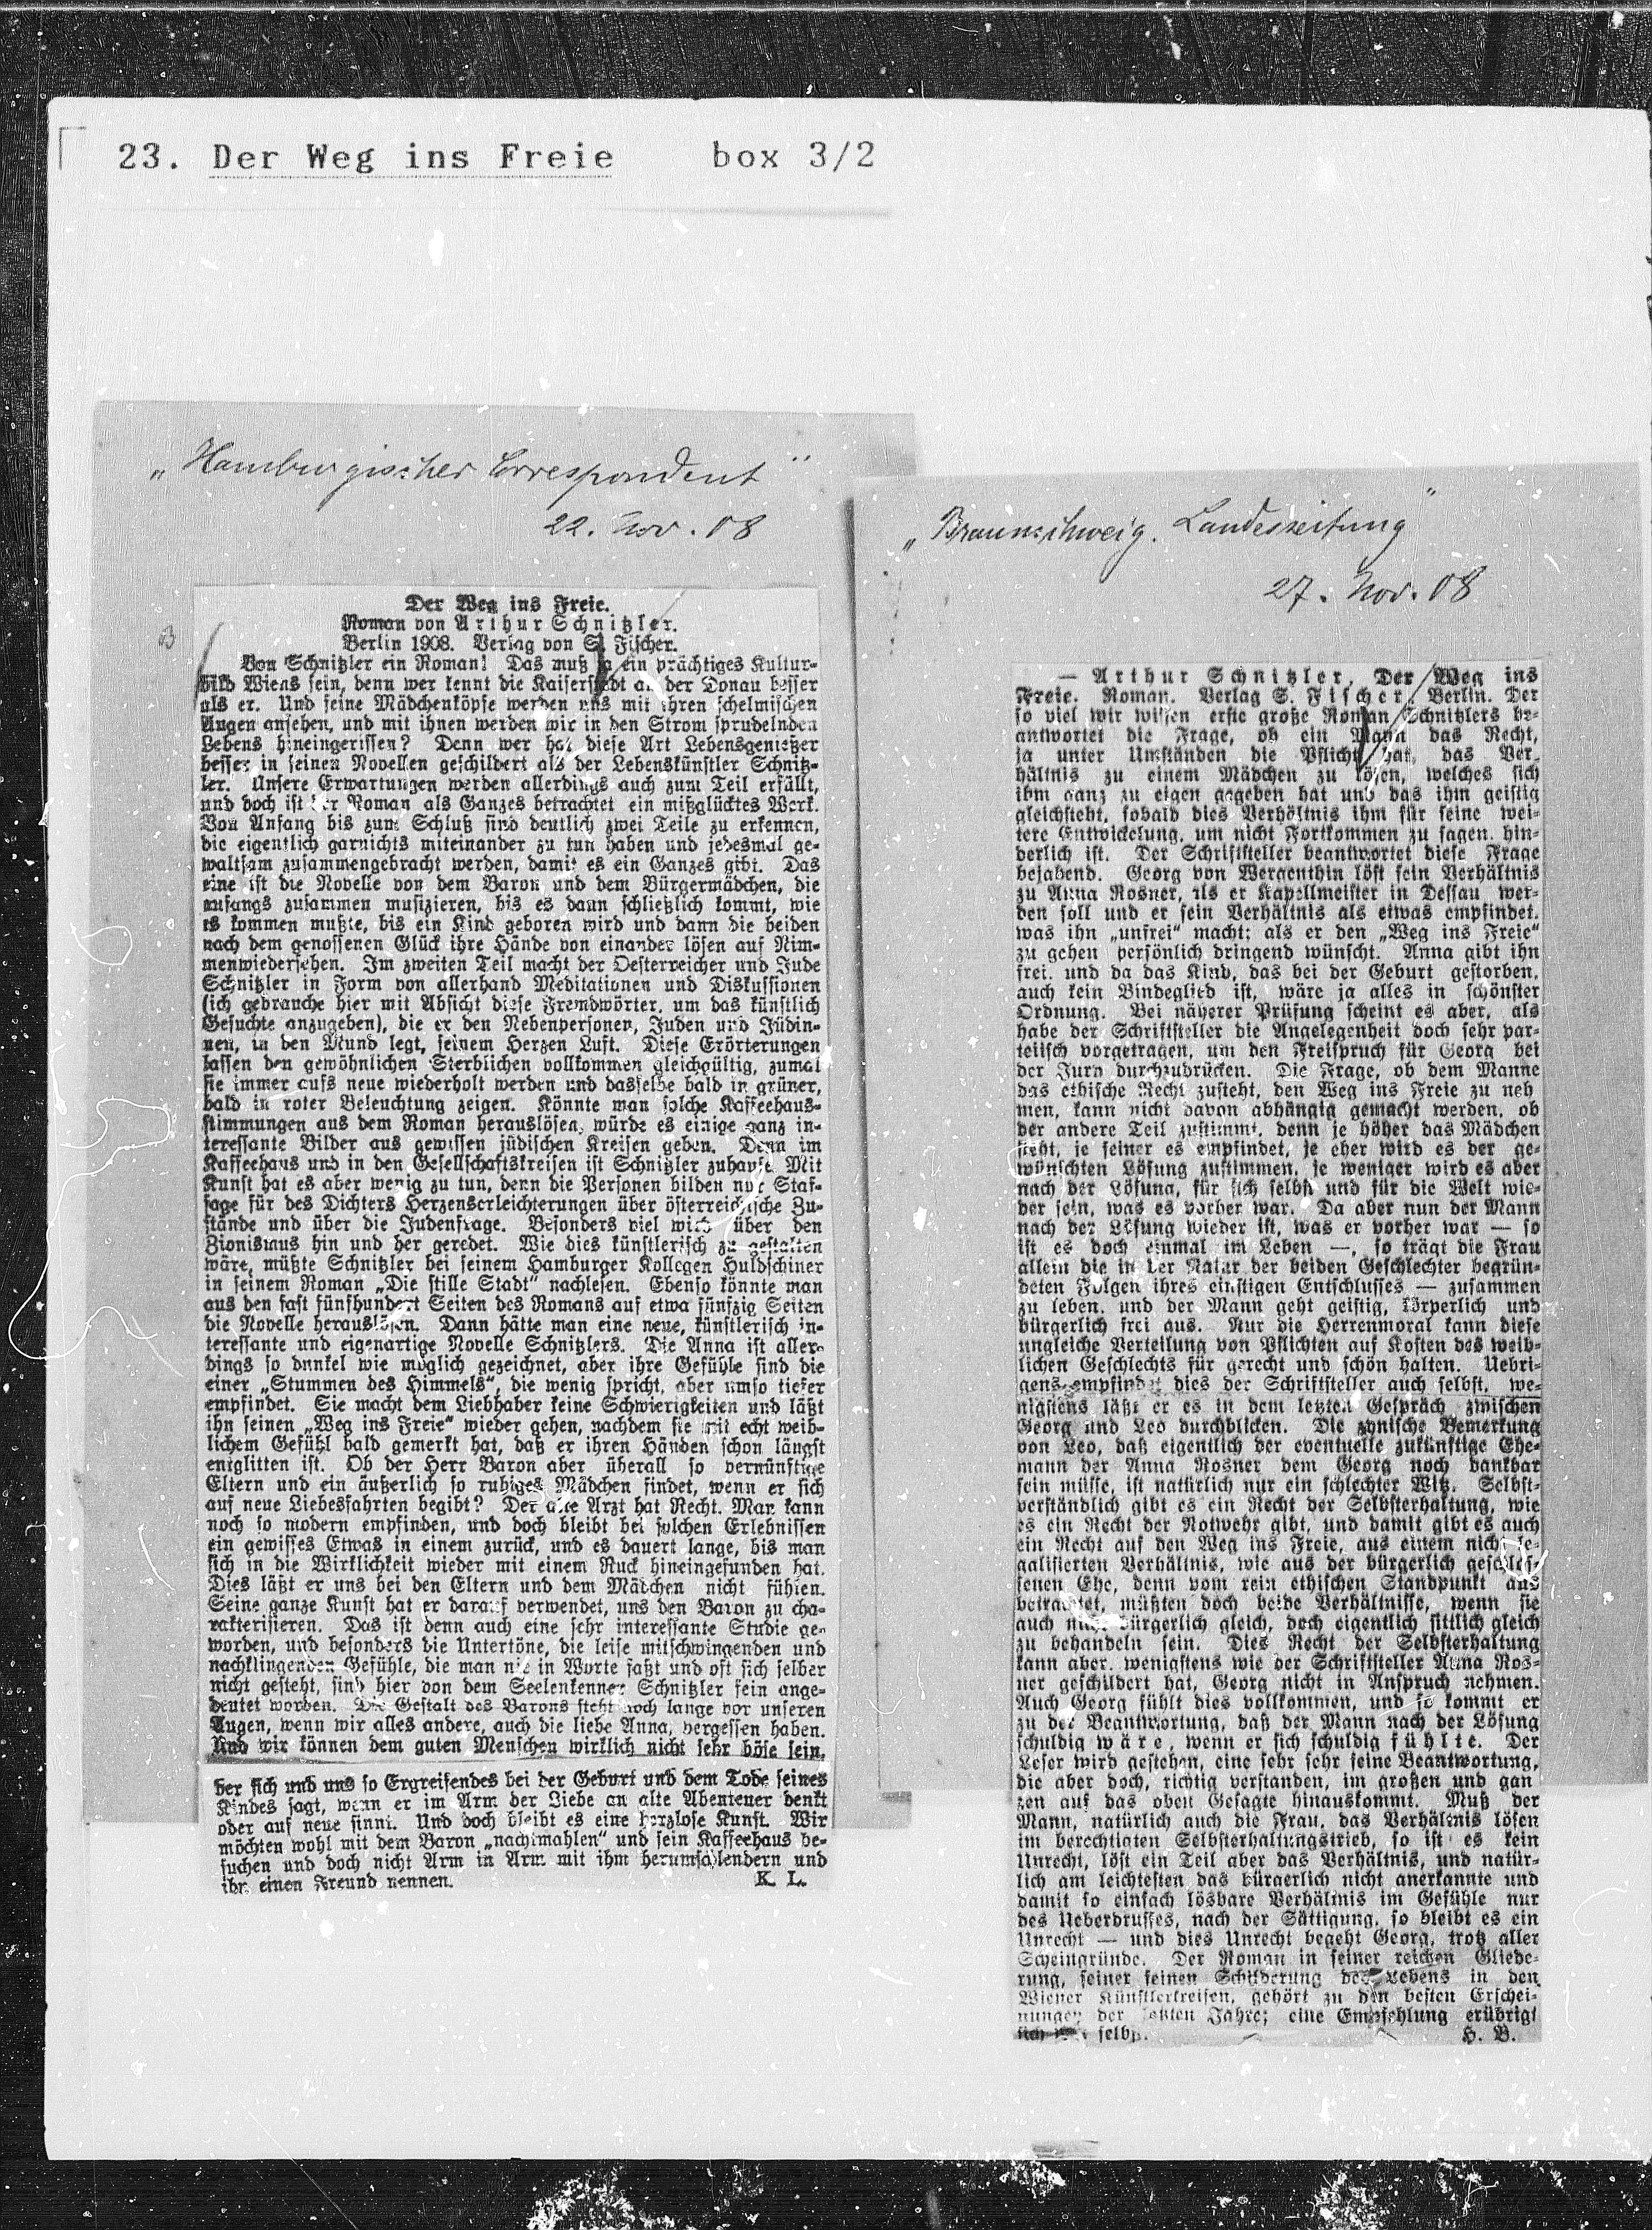 23. Der Weg ins Freie box 3/2
„Hamburgischer Correspondent"
22. Nov. 08
Der Weg ins Freie.
Roman von Arthur Schnitzler.
Berlin 1908. Verlag von S. Fischer.
Von Schnitzler ein Roman! Das muß ja ein prächtiges Kultur-
bild Wiens sein, denn wer kennt die Kaiserstadt an der Donau besser
als er. Und seine Mädchenköpfe werden uns mit ihren schelmischen
Augen ansehen, und mit ihnen werden wir in den Strom sprudelnden
Lebens hineingerissen? Denn wer hat diese Art Lebensgenießer
besser in seinen Novellen geschildert als der Lebenskünstler Schnitz-
ler. Unsere Erwartungen werden allerdings auch zum Teil erfüllt,
und doch ist der Roman als Ganzes betrachtet ein mißglücktes Werk.
Von Anfang bis zum Schluß sind deutlich zwei Teile zu erkennen,
die eigentlich garnichts miteinander zu tun haben und jedesmal ge-
waltsam zusammengebracht werden, damit es ein Ganzes gibt. Das
eine ist die Novelle von dem Baron und dem Bürgermädchen, die
anfangs zusammen musizieren, bis es dann schließlich kommt, wie
es kommen mußte, bis ein Kind geboren wird und dann die beiden
nach dem genossenen Glück ihre Hände von einander lösen auf Nim-
menwiedersehen. Im zweiten Teil macht der Oesterreicher und Jude
Schnitzler in Form von allerhand Meditationen und Diskussionen
(ich gebrauche hier mit Absicht diese Fremdwörter, um das künstlich
Gesuchte anzugeben), die er den Nebenpersonen, Juden und Jüdin-
nen, in den Mund legt, seinem Herzen Luft. Diese Erörterungen
lassen den gewöhnlichen Sterblichen vollkommen gleichgültig, zumal
sie immer aufs neue wiederholt werden und dasselbe bald in grüner,
bald in roter Beleuchtung zeigen. Könnte man solche Kaffeehaus-
stimmungen aus dem Roman herauslösen, würde es einige ganz in-
teressante Bilder aus gewissen jüdischen Kreisen geben. Denn im
Kaffeehaus und in den Gesellschaftskreisen ist Schnitzler zuhause. Mit
Kunst hat es aber wenig zu tun, denn die Personen bilden nur Staf-
fage für des Dichters Herzenserleichterungen über österreichische Zu-
stände und über die Judenfrage. Besonders viel wird über den
Zionismus hin und her geredet. Wie dies künstlerisch zu gestalten
wäre, müßte Schnitzler bei seinem Hamburger Kollegen Huldschiner
in seinem Roman „Die stille Stadt" nachlesen. Ebenso könnte man
aus den fast fünfhundert Seiten des Romans auf etwa fünfzig Seiten
die Novelle herauslösen. Dann hätte man eine neue, künstlerisch in-
teressante und eigenartige Novelle Schnitzlers. Die Anna ist aller-
dings so dunkel wie möglich gezeichnet, aber ihre Gefühle sind die
einer „Stummen des Himmels", die wenig spricht, aber umso tiefer
empfindet. Sie macht dem Liebhaber keine Schwierigkeiten und läßt
ihn seinen „Weg ins Freie" wieder gehen, nachdem sie mit echt weib-
lichem Gefühl bald gemerkt hat, daß er ihren Händen schon längst
entglitten ist. Ob der Herr Baron aber überall so vernünftige
Eltern und ein äußerlich so ruhiges Mädchen findet, wenn er sich
auf neue Liebesfahrten begibt? Der alte Arzt hat Recht. Man kann
noch so modern empfinden, und doch bleibt bei solchen Erlebnissen
ein gewisses Etwas in einem zurück, und es dauert lange, bis man
sich in die Wirklichkeit wieder mit einem Ruck hineingefunden hat.
Dies läßt er uns bei den Eltern und dem Mädchen nicht fühlen.
Seine ganze Kunst hat er darauf verwendet, uns den Baron zu cha-
rakterisieren. Das ist denn auch eine sehr interessante Studie ge-
worden, und besonders die Untertöne, die leise mitschwingenden und
nachklingenden Gefühle, die man nie in Worte faßt und oft sich selber
nicht gesteht, sind hier von dem Seelenkenner Schnitzler fein ange-
deutet worden. Die Gestalt des Barons steht noch lange vor unseren
Augen, wenn wir alles andere, auch die liebe Anna, vergessen haben.
Und wir können dem guten Menschen wirklich nicht sehr böse sein,
der sich und uns so Ergreifendes bei der Geburt und dem Tode seines
Kindes sagt, wenn er im Arm der Liebe an alte Abenteuer denkt
oder auf neue sinnt. Und doch bleibt es eine herzlose Kunst. Wir
möchten wohl mit dem Baron „nachtmahlen" und sein Kaffeehaus be-
suchen und doch nicht Arm in Arm mit ihm herumschlendern und
ihn einen Freund nennen. K. L.
„Braunschweig. Landeszeitung"
27. Nov. 08
— Arthur Schnitzler, Der Weg ins
Freie. Roman. Verlag S. Fischer, Berlin. Der
so viel wir wissen erste große Roman Schnitzlers be-
antwortet die Frage, ob ein Mann das Recht,
ja unter Umständen die Pflicht hat, das Ver-
hältnis zu einem Mädchen zu lösen, welches sich
ihm ganz zu eigen gegeben hat und das ihm geistig
gleichsteht, sobald dies Verhältnis ihm für seine wei-
tere Entwickelung, um nicht Fortkommen zu sagen, hin-
derlich ist. Der Schriftsteller beantwortet diese Frage
bejahend. Georg von Wergenthin löst sein Verhältnis
zu Anna Rosner, als er Kapellmeister in Dessau wer-
den soll und er sein Verhältnis als etwas empfindet,
was ihn „unfrei" macht; als er den „Weg ins Freie"
zu gehen persönlich dringend wünscht. Anna gibt ihn
frei, und da das Kind, das bei der Geburt gestorben,
auch kein Bindeglied ist, wäre ja alles in schönster
Ordnung. Bei näherer Prüfung scheint es aber, als
habe der Schriftsteller die Angelegenheit doch sehr par-
teiisch vorgetragen, um den Freispruch für Georg bei
der Jury durchzudrücken. Die Frage, ob dem Manne
das ethische Recht zusteht, den Weg ins Freie zu neh
men, kann nicht davon abhängig gemacht werden, ob
der andere Teil zustimmt, denn je höher das Mädchen
steht, je feiner es empfindet, je eher wird es der ge-
wünschten Lösung zustimmen, je weniger wird es aber
nach der Lösung, für sich selbst und für die Welt wie-
der sein, was es vorher war. Da aber nun der Mann
nach der Lösung wieder ist, was er vorher war — so
ist es doch einmal im Leben —, so trägt die Frau
allein die in der Natur der beiden Geschlechter begrün-
deten Folgen ihres einstigen Entschlusses — zusammen
zu leben, und der Mann geht geistig, körperlich und
bürgerlich frei aus. Nur die Herrenmoral kann diese
ungleiche Verteilung von Pflichten auf Kosten des weib-
lichen Geschlechts für gerecht und schön halten. Uebri-
gens empfindet dies der Schriftsteller auch selbst, we-
nigstens läßt er es in dem letzten Gespräch zwischen
Georg und Leo durchblicken. Die zynische Bemerkung
von Leo, daß eigentlich der eventuelle zukünftige Ehe-
mann der Anna Rosner dem Georg noch dankbar
sein müsse, ist natürlich nur ein schlechter Witz. Selbst-
verständlich gibt es ein Recht der Selbsterhaltung, wie
es ein Recht der Notwehr gibt, und damit gibt es auch
ein Recht auf den Weg ins Freie, aus einem nicht le-
galisierten Verhältnis, wie aus der bürgerlich geschlos-
senen Ehe, denn vom rein ethischen Standpunkt aus
betrachtet, müßten doch beide Verhältnisse, wenn sie
auch nicht bürgerlich gleich, doch eigentlich sittlich gleich
zu behandeln sein. Dies Recht der Selbsterhaltung
kann aber, wenigstens wie der Schriftsteller Anna Ros-
ner geschildert hat, Georg nicht in Anspruch nehmen.
Auch Georg fühlt dies vollkommen, und so kommt er
zu der Beantwortung, daß der Mann nach der Lösung
schuldig wäre, wenn er sich schuldig fühlte. Der
Leser wird gestehen, eine sehr sehr feine Beantwortung,
die aber doch, richtig verstanden, im großen und gan
zen auf das oben Gesagte hinauskommt. Muß der
Mann, natürlich auch die Frau, das Verhältnis lösen
im berechtigten Selbsterhaltungstrieb, so ist es kein
Unrecht, löst ein Teil aber das Verhältnis, und natür-
lich am leichtesten das bürgerlich nicht anerkannte und
damit so einfach lösbare Verhältnis im Gefühle nur
des Ueberdrusses, nach der Sättigung, so bleibt es ein
Unrecht — und dies Unrecht begeht Georg, trotz aller
Scheingründe. Der Roman in seiner reichen Gliede-
rung, seiner feinen Schilderung des Lebens in den
Wiener Künstlerkreisen, gehört zu den besten Erschei-
nungen der letzten Jahre; eine Empfehlung erübrigt
sich von selbst. H. B.